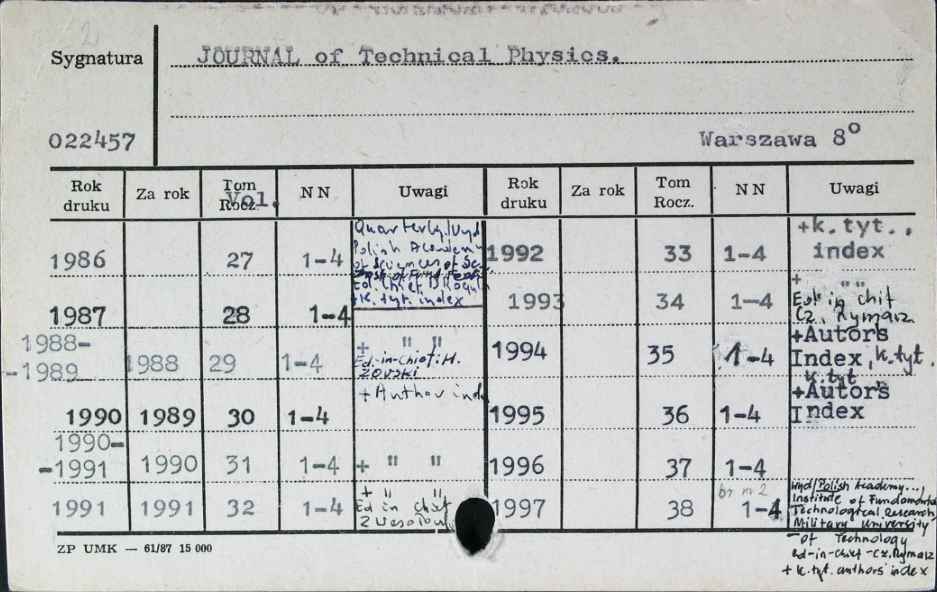 Sygnatura
JOURNAL of Technical Physics.
022457
Warszawa 8°
Rok druku Za rok Tom Rocz. Vol. NN Uwagi Rok druku Za rok Tom Rocz. NN Uwagi
1986 27 1-4
Quarterly/Wyd
Polish Academy
of Sciences
Ed. chief
+k. tyt. index
1987 28 1-4
1988-
-1989 1988 29 1-4 + " "
Ed-in-Chief: H.
1990 1989 30 1-4 + Author ind
1990-
-1991 1990 31 1-4 + " "
1991 1991 32 1-4 + " "
Ed in chief
1992 33 1-4 +k.tyt.,
index
1993 34 1-4 + " "
Ed in chif
Cz. Rymarz
1994 35 1-4 +Autors
Index, k.tyt.
k tyt
1995 36 1-4 +Autors
Index
1996 37 1-4
br nr 2
1997 38 1-4
Wyd/Polish Academy...,
Institute of Fundamental
Technological Research,
Military University
of Technology
Ed-in-chief - Cz. Rymarz
+ k.tyt. authors index
ZP UMK — 61/87 15 000